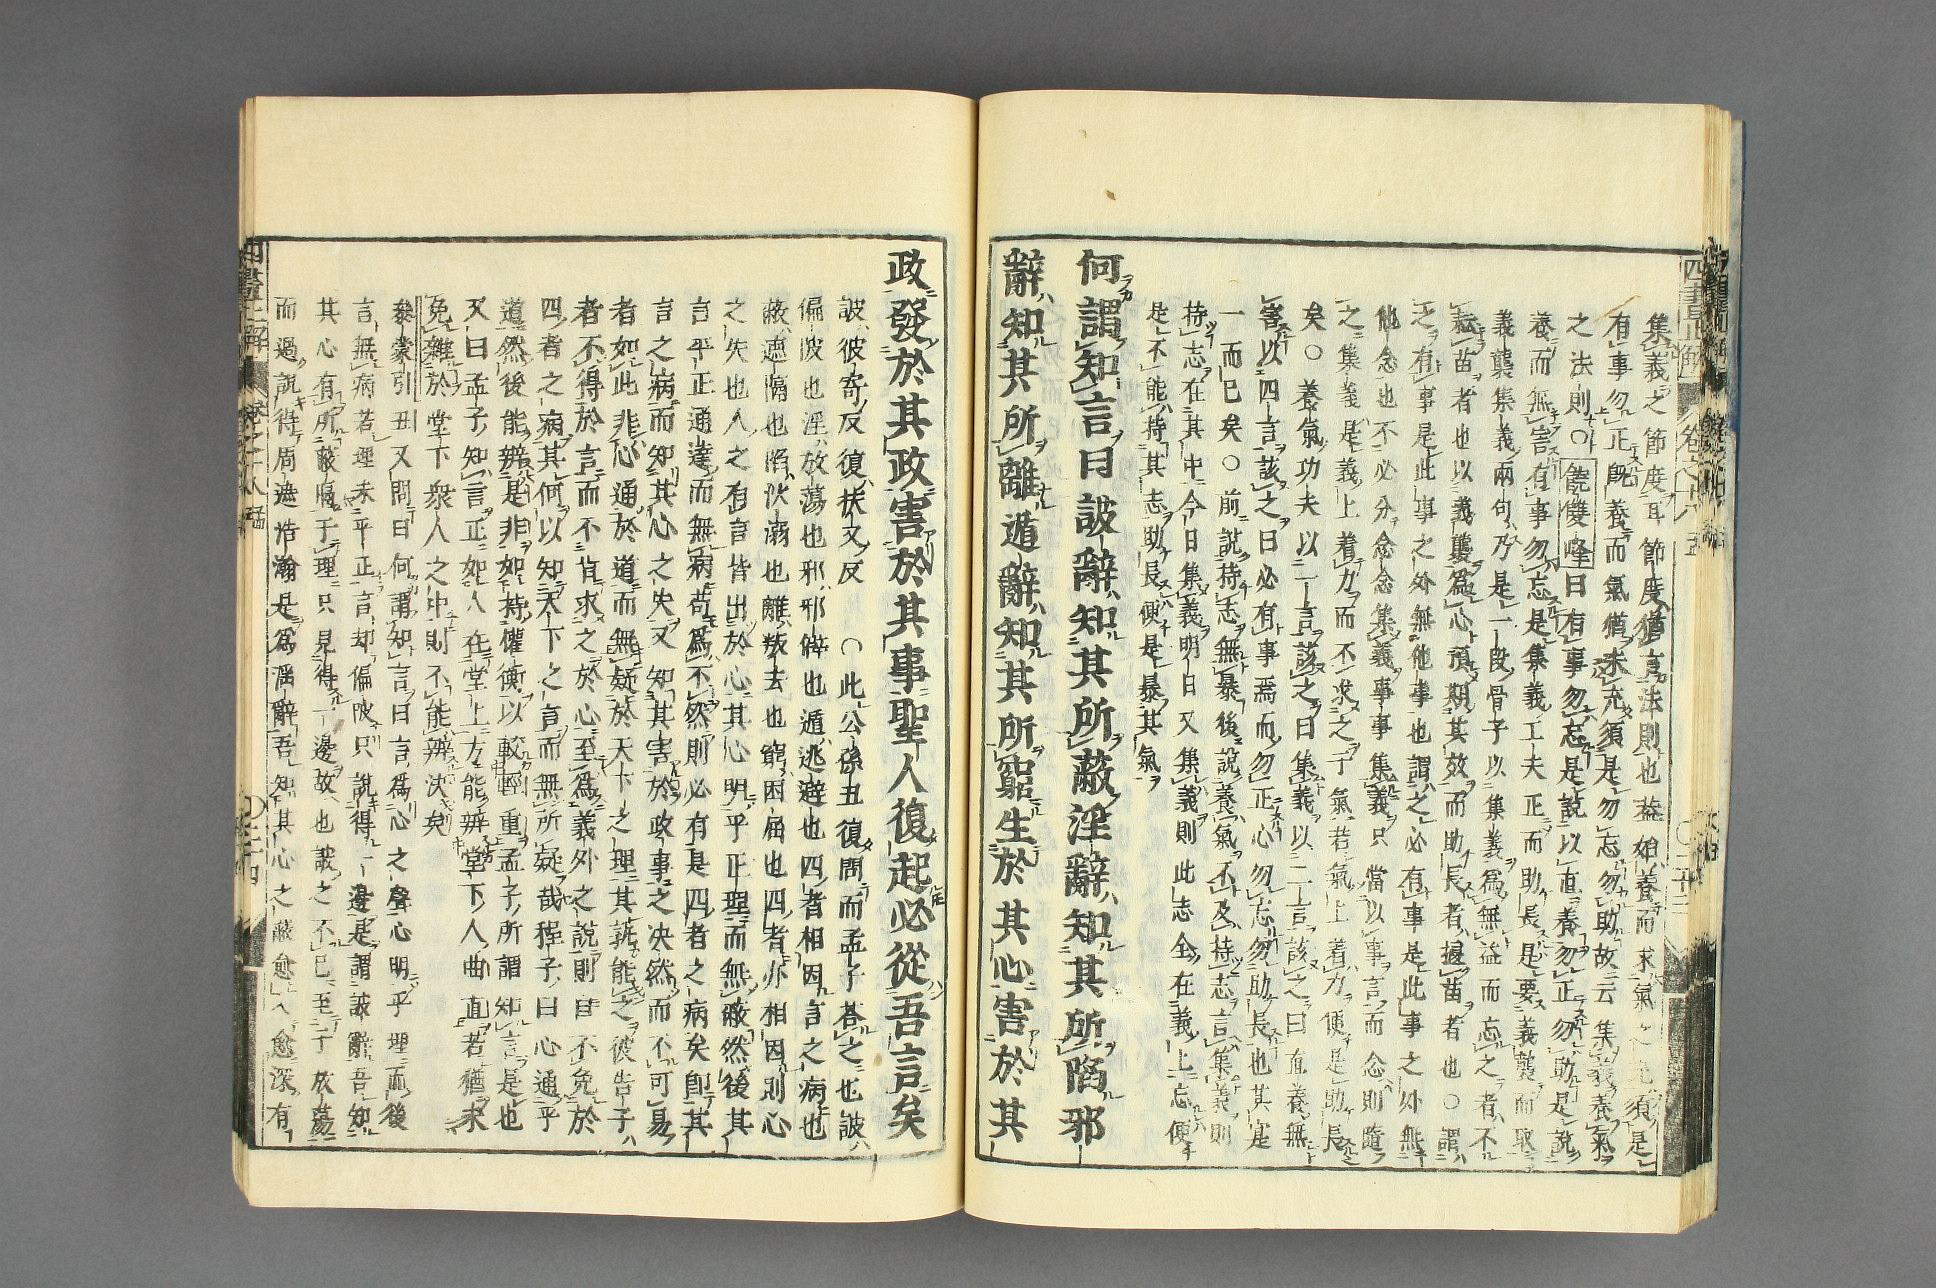 集義之節度耳節度猶言法則也蓋如養而求氣之須是
有事勿正既養而氣猶未充須是勿忘勿助故云集義養氣
之法則○饒雙峰曰有事勿忘是說以直養勿正勿助是說
養而無害有事勿忘是集義工夫正而助長是要義襲而取
義襲集義兩句乃是一段骨子以集義為無益而忘之者不
耘苗者也以義襲為心預期其效而助長者揠苗者也○謂
之有事是此事之外無他事也謂之必有事是此事之外無
他念也不必分念念集義事事集義只當以事言而念則隨
之集義是義上着力而不求之于氣若氣上着力便是助長
矣○養氣功夫以二言該之曰集義以二言該之曰直養無
害以四言該之曰必有事焉而勿正心勿忘勿助長也其寔
一而已矣○前說持志無暴後說養氣不及持志言集義則
持志在其中今日集義明日又集義則此志全在義上忘便
是不能持其志助長便是暴其氣
何謂知言曰詖辭知其所蔽淫辭知其所陷邪
辭知其所離遁辭知其所窮生於其心害於其
政發於其政害於其事聖人復起必從吾言矣
詖彼寄反復扶又反 ○此公孫丑復問而孟子荅之也詖
偏陂也淫放蕩也邪邪僻也遁逃避也四者相因言之病也
蔽遮隔也陷沈溺也離叛去也窮困屈也四者亦相因則心
之失也人之有言皆出於心其心明乎正理而無蔽然後其
言平正通達而無病苟為不然則必有是四者之病矣即其
言之病而知其心之失又知其害於政事之决然而不可易
者如此非心通於道而無疑於天下之理其孰能之彼告子
者不得於言而不肯求之於心至為義外之說則自不免於
四者之病其何以知天下之言而無所疑哉程子曰心通乎
道然後能辨是非如持權衡以較輕重孟子所謂知言是也
又曰孟子知言正如人在堂上方能辨堂下人曲直若猶未
免雜於堂下衆人之中則不能辨决矣
蔡蒙引丑又問曰何謂知言曰言為心之聲心明乎理而後
言無病若理未平正言却偏陂只說得一邊是謂詖辭吾知
其心有所蔽隔于理只見得一邊故也詖之不已至于放蕩
而過說得周遮浩瀚是為淫辭吾知其心之蔽愈久愈深有